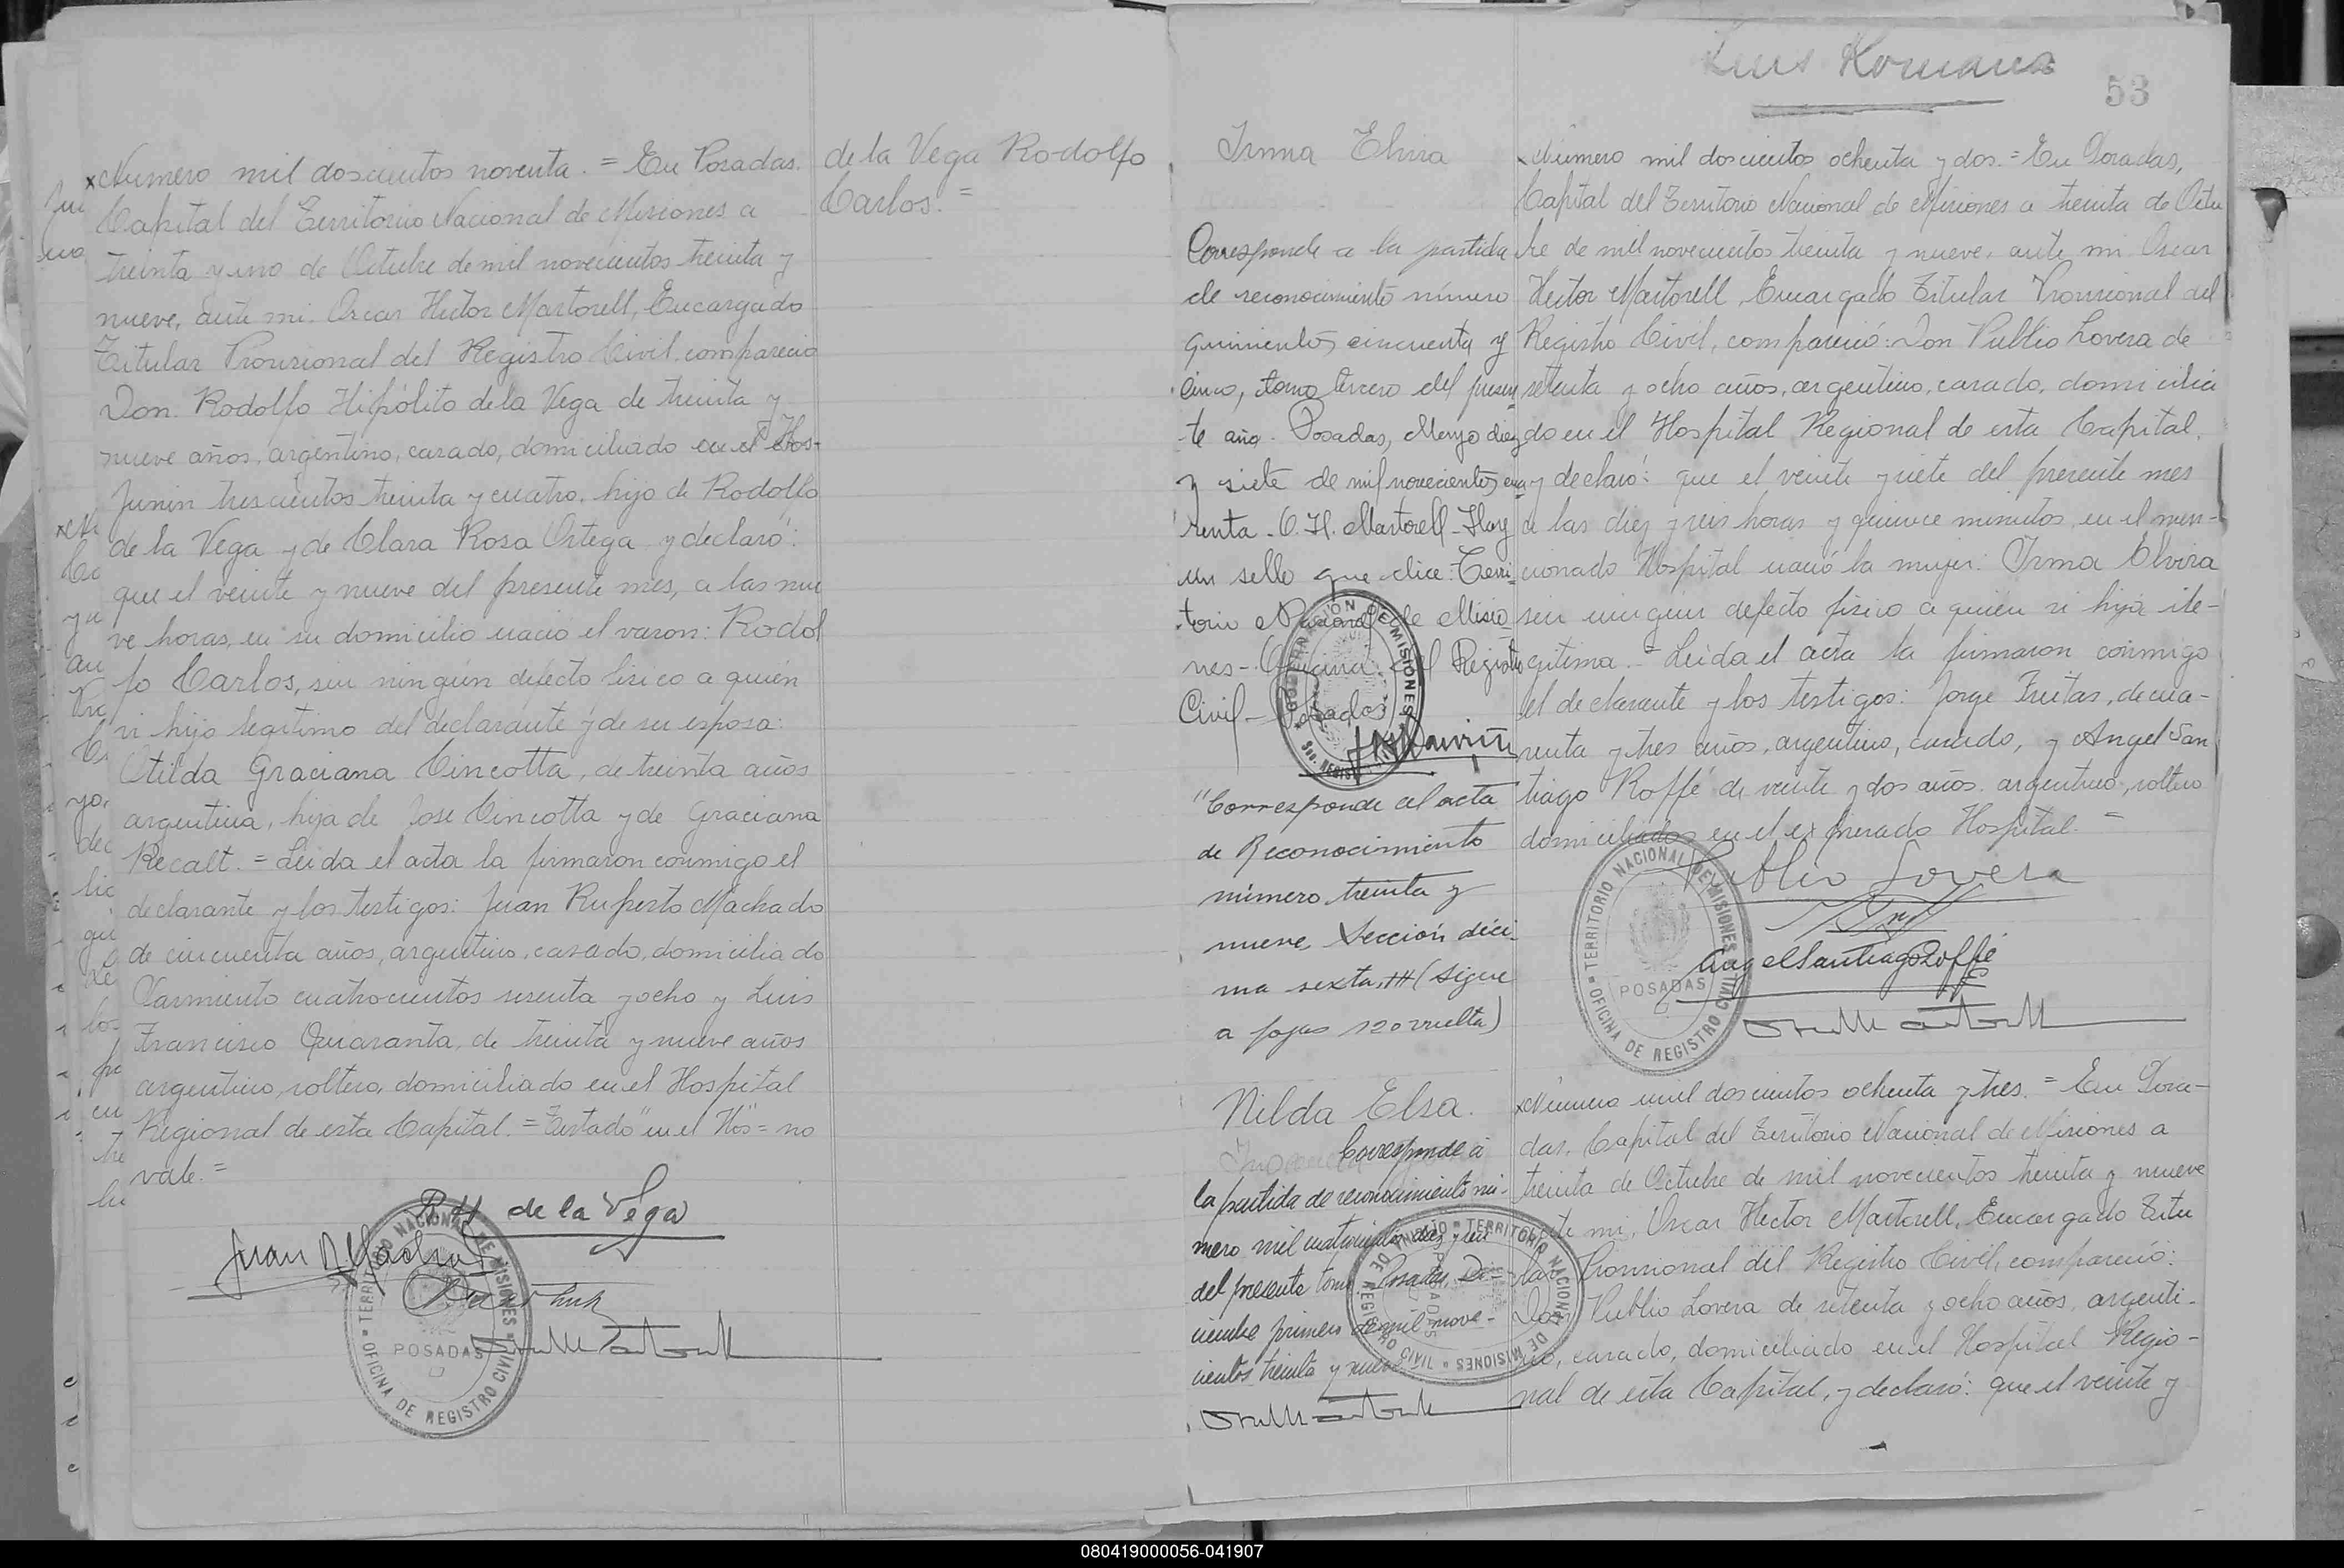 xNumero mil doscientos noventa. = En Posadas.
Capital del Territorio Nacional de Misiones a
treinta y uno de Octubre de mil novecientos treinta y
nueve, ante mi. Oscar Hector Martorell, Encargado
Titular Provisional del Registro Civil. comparecio
Don. Rodolfo Hipólito de la Vega de treinta y
nueve años, argentino, casado, domiciliado en el Hos-
Junin trescientos treinta y cuatro, hijo de Rodolfo
de la Vega y de Clara Rosa Ortega y declaró:
que el veinte y nueve del presente mes, a las nue
ve horas, en su domicilio nacio el varon: Rodol
fo Carlos, sin ningún defecto fisico a quien
vi hijo legitimo del declarante y de su esposa:
Otilda Graciana Cincotta, de treinta años
argentina, hija de Jose Cincotta y de Graciana
Recalt. = Leida el acta la firmaron conmigo el
declarante y los testigos: Juan Ruperto Machado
de cincuenta años, argentino, casado, domiciliado
Sarmiento cuatrocientos sesenta y ocho y Luis
Francisco Quaranta, de treinta y nueve años
argentino, soltero, domiciliado en el Hospital
Regional de esta Capital. = Testado "en el Hos" = no
vale. =
R H de la Vega
Juan R Machado
TERRITORIO NACIONAL DE MISIONES
POSADAS
OFICINA DE REGISTRO CIVIL
de la Vega Rodolfo
Carlos. =
Luis Romana
53
Irma Elvira
Corresponde a la partida
de reconocimiento número
quinientos cincuenta y
cinco, tomo tercero del presen
te año. Posadas, Mayo diez
y siete de mil novecientos cua
renta - O. H. Martorell - Hay
un sello que dice: Terri
torio Nacional de Misio
nes - Oficina del Registro
Civil - Posadas
"Corresponde al acta
de Reconocimiento
número treinta y
nueve Sección déci-
ma sexta, III (sigue
a fojas 120 vuelta)
xNumero mil doscientos ochenta y dos. = En Posadas,
Capital del Territorio Nacional de Misiones a treinta de Octu
bre de mil novecientos treinta y nueve, ante mi Oscar
Hector Martorell, Encargado Titular Provisional del
Registro Civil, compareció: Don Publio Lovera de
setenta y ocho años, argentino, casado, domicilia
do en el Hospital Regional de esta Capital,
y declaró: que el veinte y siete del presente mes
a las diez y seis horas y quince minutos, en el men-
cionado Hospital nació la mujer: Irma Elvira
sin ningun defecto fisico a quien vi hija ile-
gitima. = Leida el acta la firmaron conmigo
el declarante y los testigos: Jorge Freitas, de cua-
renta y tres años, argentino, casado, y Angel San
tiago Roffé de veinte y dos años, argentino, soltero
domiciliados en el expresado Hospital. =
Publio Lovera
Angel Santiago Roffé
TERRITORIO NACIONAL DE MISIONES
POSADAS
OFICINA DE REGISTRO CIVIL
Nilda Elsa.
Corresponde á
la partida de reconocimiento nú-
mero mil cuatrocientos diez y seis
del presente tomo. Posadas, Di-
ciembre primero de mil nove-
cientos treinta y nueve
xNúmero mil doscientos ochenta y tres. = En Posa-
das, Capital del Territorio Nacional de Misiones a
treinta de Octubre de mil novecientos treinta y nueve
ante mi, Oscar Hector Martorell, Encargado Titu
lar Provisional del Registro Civil, compareció:
Don Publio Lovera de setenta y ocho años, argenti-
no, casado, domiciliado en el Hospital Regio-
nal de esta Capital, y declaró: que el veinte y
080419000056-041907